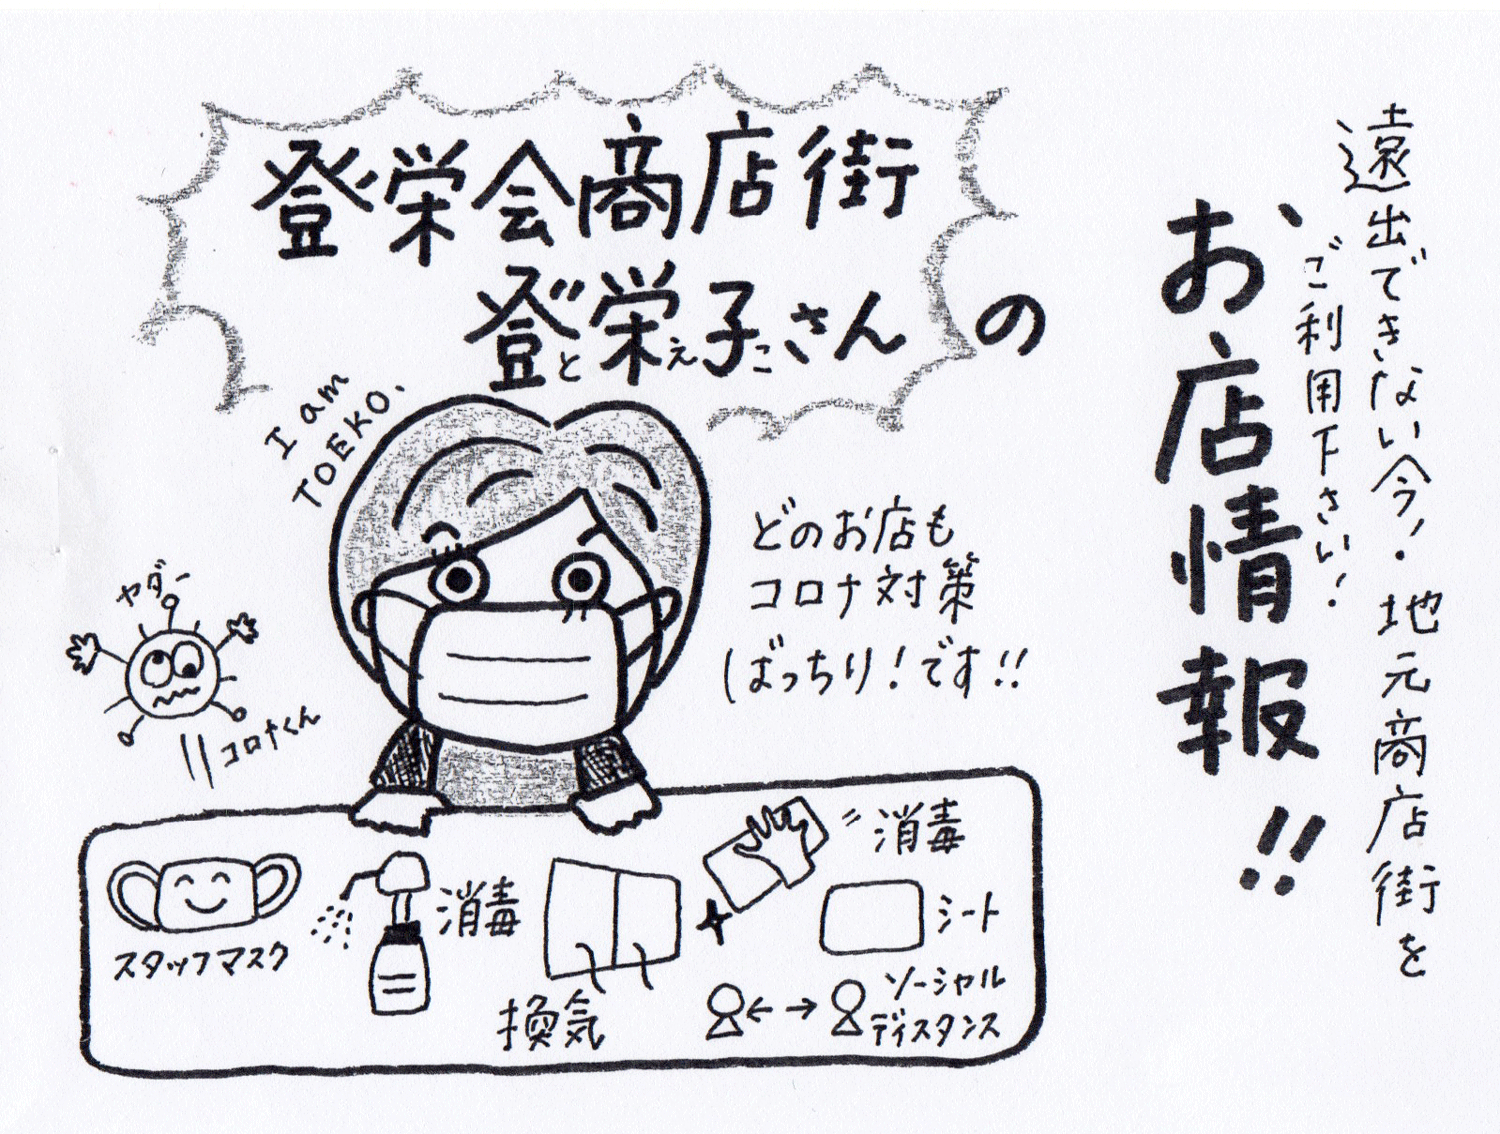 遠出できない今！・地元商店街を
ご利用下さい！
登栄会商店街
登栄子さんの
とえこ
お店情報!!
I am
TOEKO.
どのお店も
コロナ対策
ばっちり！です!!
ヤダー
コロナくん
スタッフマスク
消毒
換気
消毒
シート
ソーシャル
ディスタンス